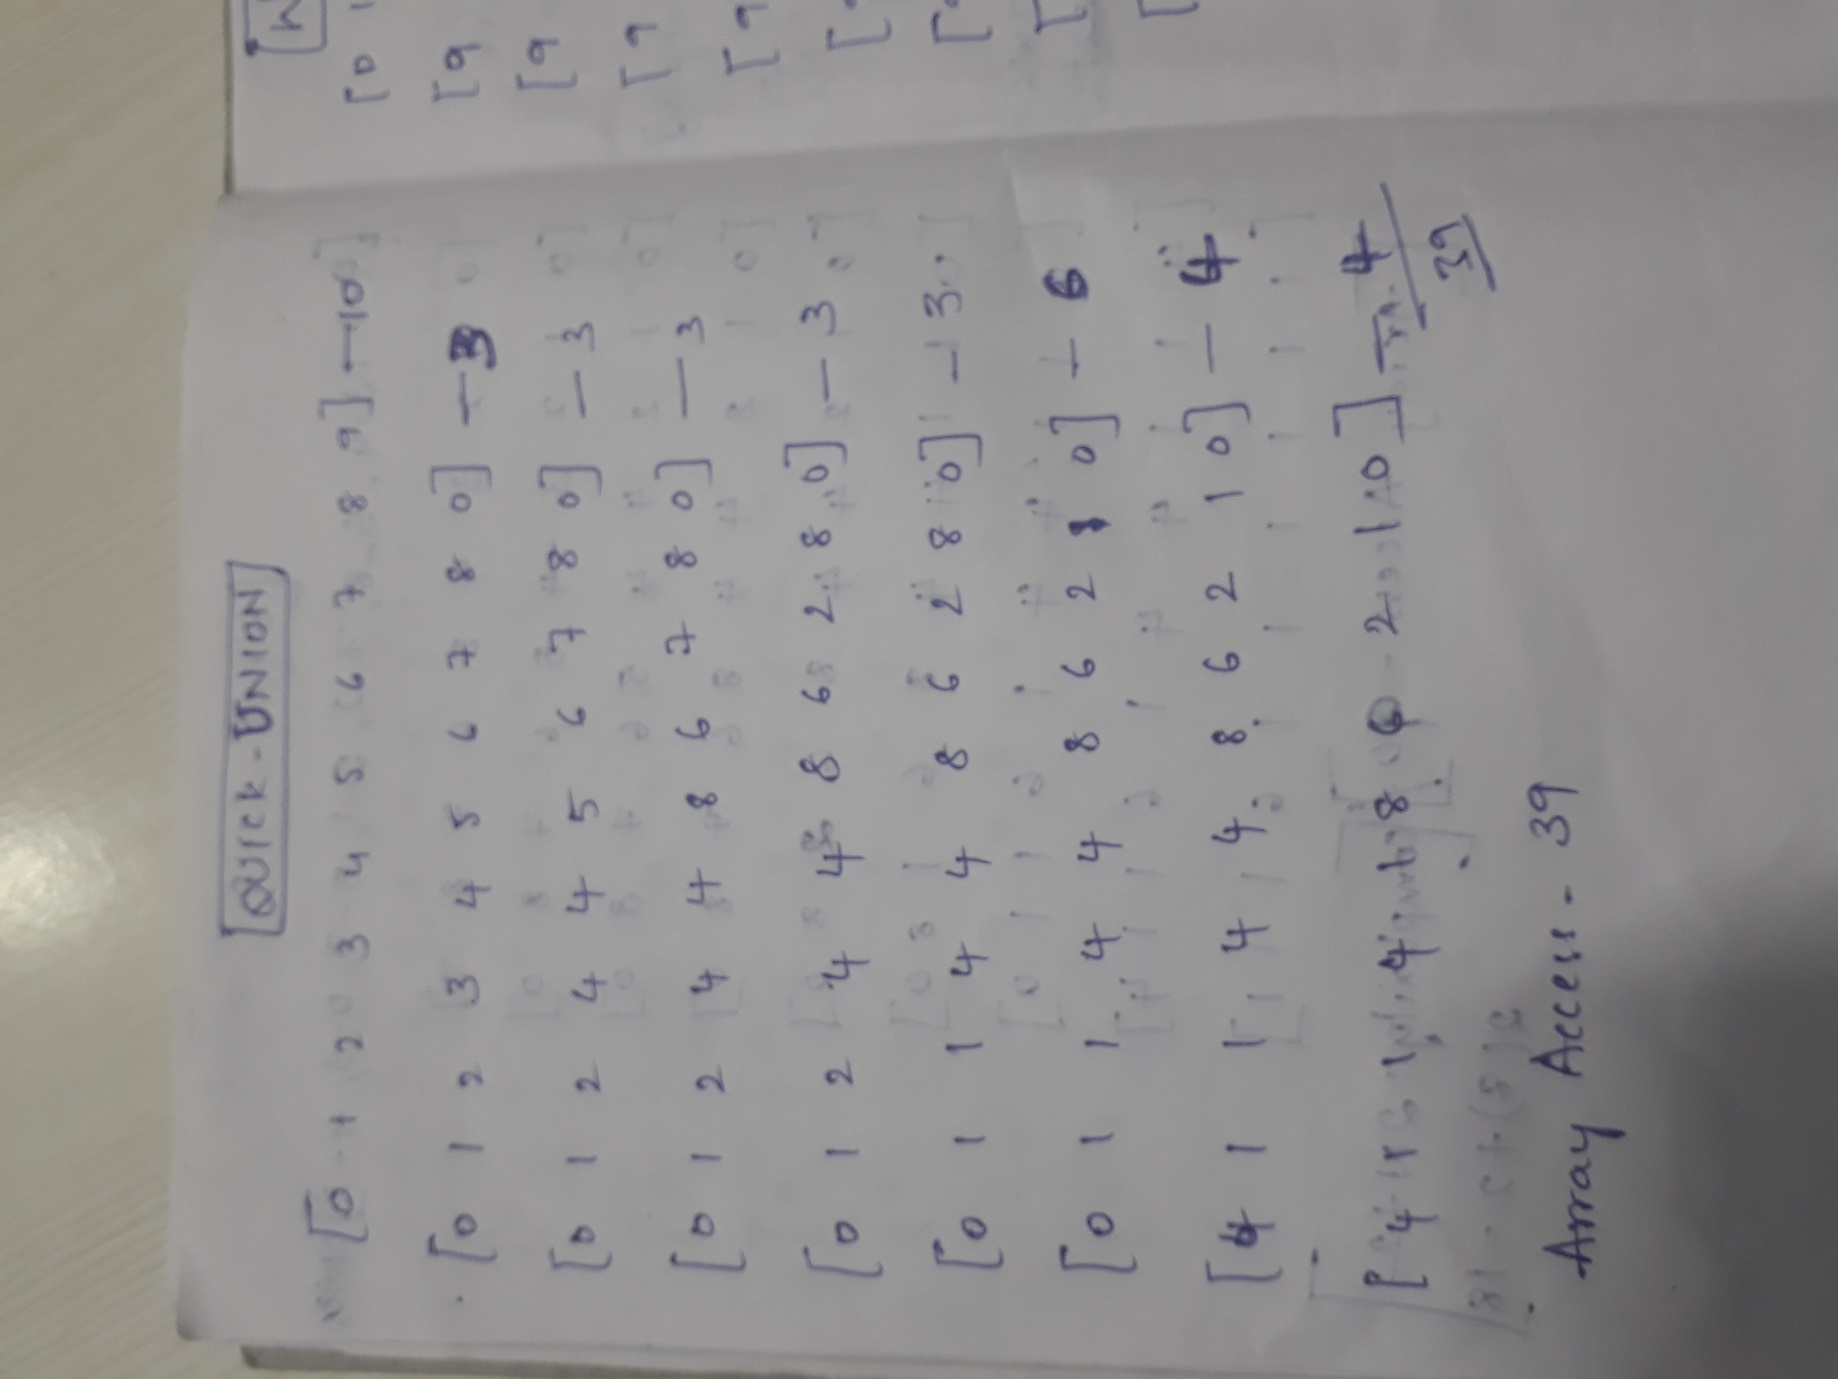 QUICK-UNION
[0 1 2 3 4 5 6 7 8 9] — 10
[0 1 2 3 4 5 6 7 8 0] — 3
[0 1 2 4 4 5 6 7 8 0] — 3
[0 1 2 4 4 8 6 7 8 0] — 3
[0 1 2 4 4 8 6 2 8 0] — 3
[0 1 1 4 4 8 6 2 8 0] — 3
[0 1 1 4 4 8 6 2 1 0] — 6
[4 1 1 4 4 8 6 2 1 0] — 4
[4 1 1 4 8 6 2 1 0] — 4
39
Array Access - 39
[0 1
[9
[9
[9
[9